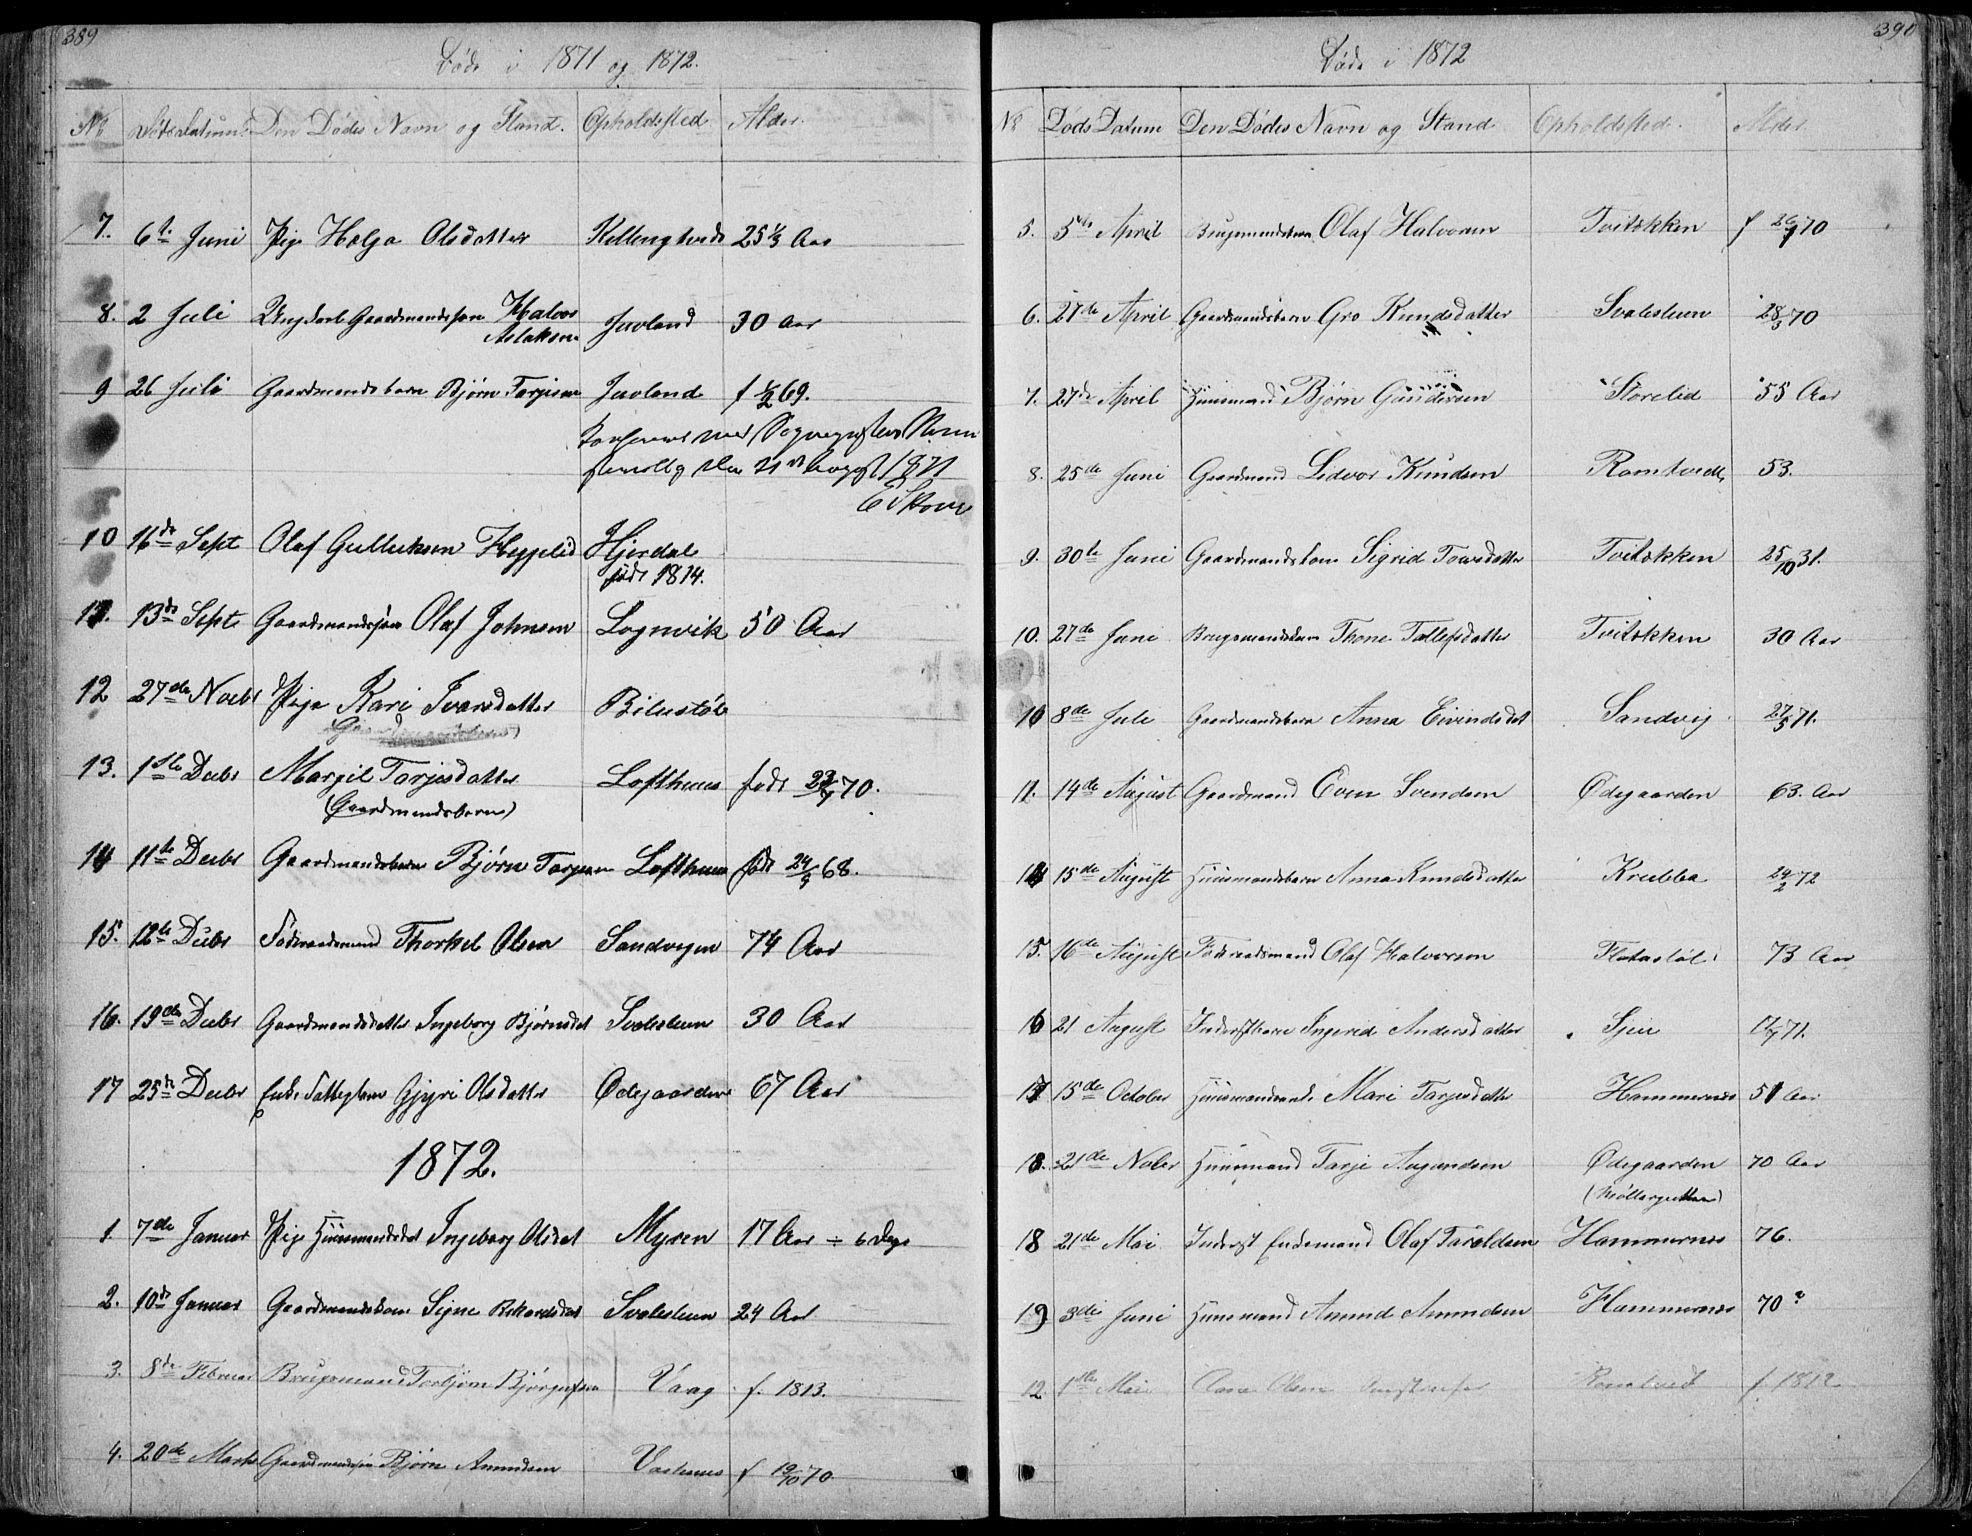 389
Døde i 1871 og 1872.
No Dødsdatum. Den Dødes Navn og Stand. Opholdsted Alder.
7. 6te Juni Pige Helga Olsdatter 25 1/3 Aar
8. 2 Juli Ungkarl Gaardmandssøn Halvor Juvland 30 Aar
Aslaksen
9 26 Juli Gaardmandsbarn Bjørn Torjusen Juvland f 69.
1871
10 16de Sept Olaf Gulleiksen Heggelid Hjerdal
født 1814.
11. 13de Septe Gaardmandssøn Olaf Johnsen Lognvik 50 Aar
12 27de Novbr Pige Kari Ivarsdatter Bilustøl
13. 1ste Decbr Margit Torjusdatter Lofthuus født 70.
(Gaardmandsbarn)
14 11te Decbr Gaardmandsbarn Bjørn Lofthuus født 24/9 68.
15. 12te Decbr Føderaadsmand Thorkel Olsen Sandvigen 74 Aar
16. 19de Decbr Gaardmandsdatter Ingeborg Bjørnsdat Svalestuen 30 Aar
17 25de Decbr Enke Fattiglem Gjyri Olsdatter Ødegaarden 67 Aar
1872.
1. 7de Januar Pige Huusmandsdat Ingeborg Olsdat Myren 17 Aar ÷ 6 Dage
2. 10de Januar Gaardmandskone Signe Rikardsdat Svalestuen 24 Aar
3. 8de Februar Brugsmand Torbjørn Vaag f. 1813.
4. 20de Marts Gaardmandssøn Bjørn Amundsen f 19/10 70
390
Døde i 1872
No Døds Datum Den Dødes Navn og Stand Opholdsted. Alder.
5. 5te April Brugsmandsbarn Olaf Halvorsen Tveitøkken f 26/1 70
6. 27de April Gaardmandsbarn Gro Knudsdatter Svalestuen 28/3 70
7. 27de April Huusmand Bjørn Gundersen Storelid 55 Aar
8. 25de Juni Gaardmand Ledvor Knudsen Ramtvedt 53.
9. 30te Juni Gaardmandskone Sigrid Tovsdatter Tveitøkken 25/10 31.
10. 27de Juni Brugsmandskone Thone Tollefsdatter Tveitøkken 30 Aar
8de Juli Gaardmandsbarn Anna Eivindsdat Sandvig 27/5 71.
11. 14de August Gaardmand Even Svendsen Ødegaarden 63. Aar
15de August Huusmandsbarn Anna Knudsdatter Krubba 24/2 72
15. 16de August Føderaadsmand Olaf Halvorsen Flatastøl 73 Aar
16 21 August Inderstbarn Ingerid Andersdatter 71.
17 15de October Huusmandsenke Mari Torjusdatter Hammernes 51 Aar
18. 21de Nobr Huusmand Tarje Augundsen Ødegaarden 70 Aar
(Møllargutten)
18 21de Mai Inderst Enkemand Olaf Taraldsen Hammernes 76.
19 3die Juni Huusmand Amund Amundsen Hammernes 70?
12 1ste Mai Aase Olsen Ramtved f. 1812